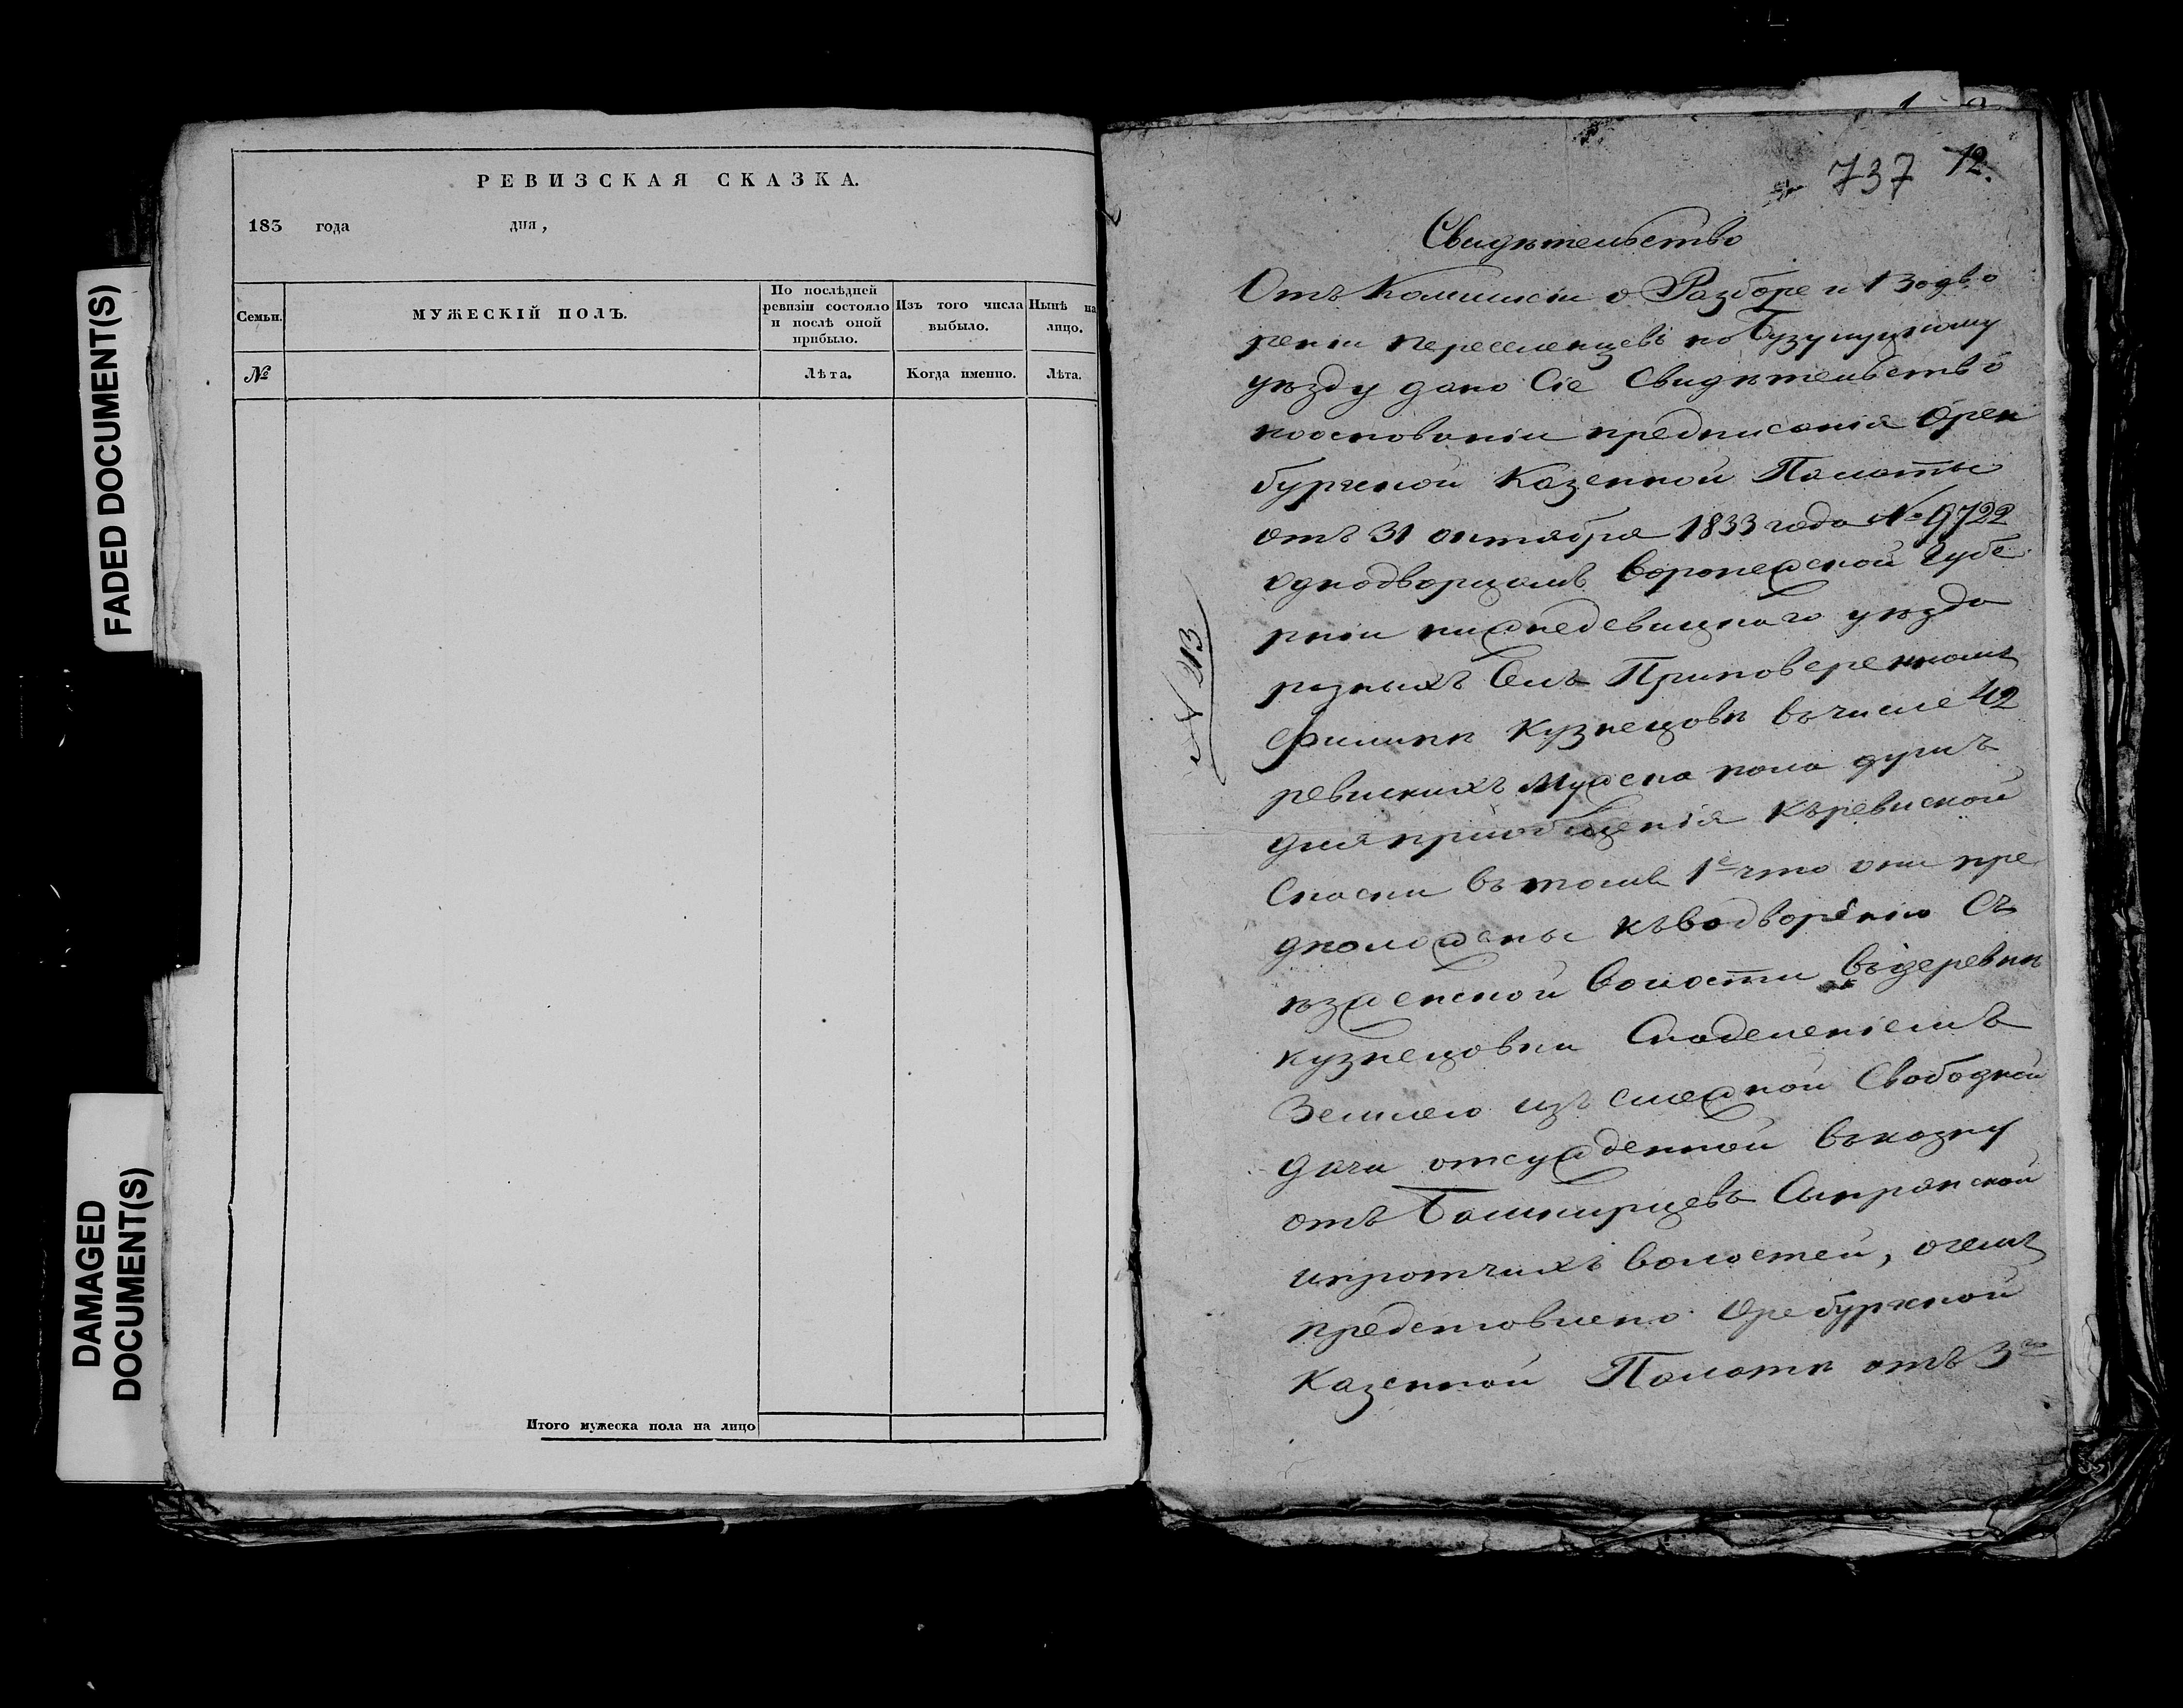 FADED DOCUMENT(S)
DAMAGED
DOCUMENT(S)
РЕВИЗСКАЯ СКАЗКА.
183 года дня,
Семьи.
МУЖЕСКІЙ ПОЛЪ.
По послѣдней
ревизіи состояло
и послѣ оной
прибыло.
Изъ того числа
выбыло.
Нынѣ на
лицо.
№
Лѣта.
Когда именно.
Лѣта.
Итого мужеска пола на лицо
737 12.
Свидѣтельство
Отъ Комиисіи о Разборе и Водво
реніи переселенцевъ по Бузулуцкому
уѣзду дано Сіе Свидѣтельство
пооснованіи предписанія Орен
бургской Казенной Палаты
отъ 31 октября 1833 года № 9722
однодворцамъ Воронежской Губе
рніи нижнедевицкаго уѣзда
разныхъ Селъ Приповеренномъ
Филипѣ Кузнецовѣ вчисле 42
ревискихъ Мужска пола душъ
для приобщенія Кървиской
Сказки въ томъ 1е что они пре
дположены къводворенію Съ
ѣзженской Волости въдеревнѣ
кузнецовки Снаделеніемъ
Землею изъ смежной Свободной
дачи отсужденной въказну
отъ Башкирцевъ Сыпранской
ипротчихъ волостей, очемъ
представлено Оребургской
Казенной Палатѣ отъ 3го
№ 213